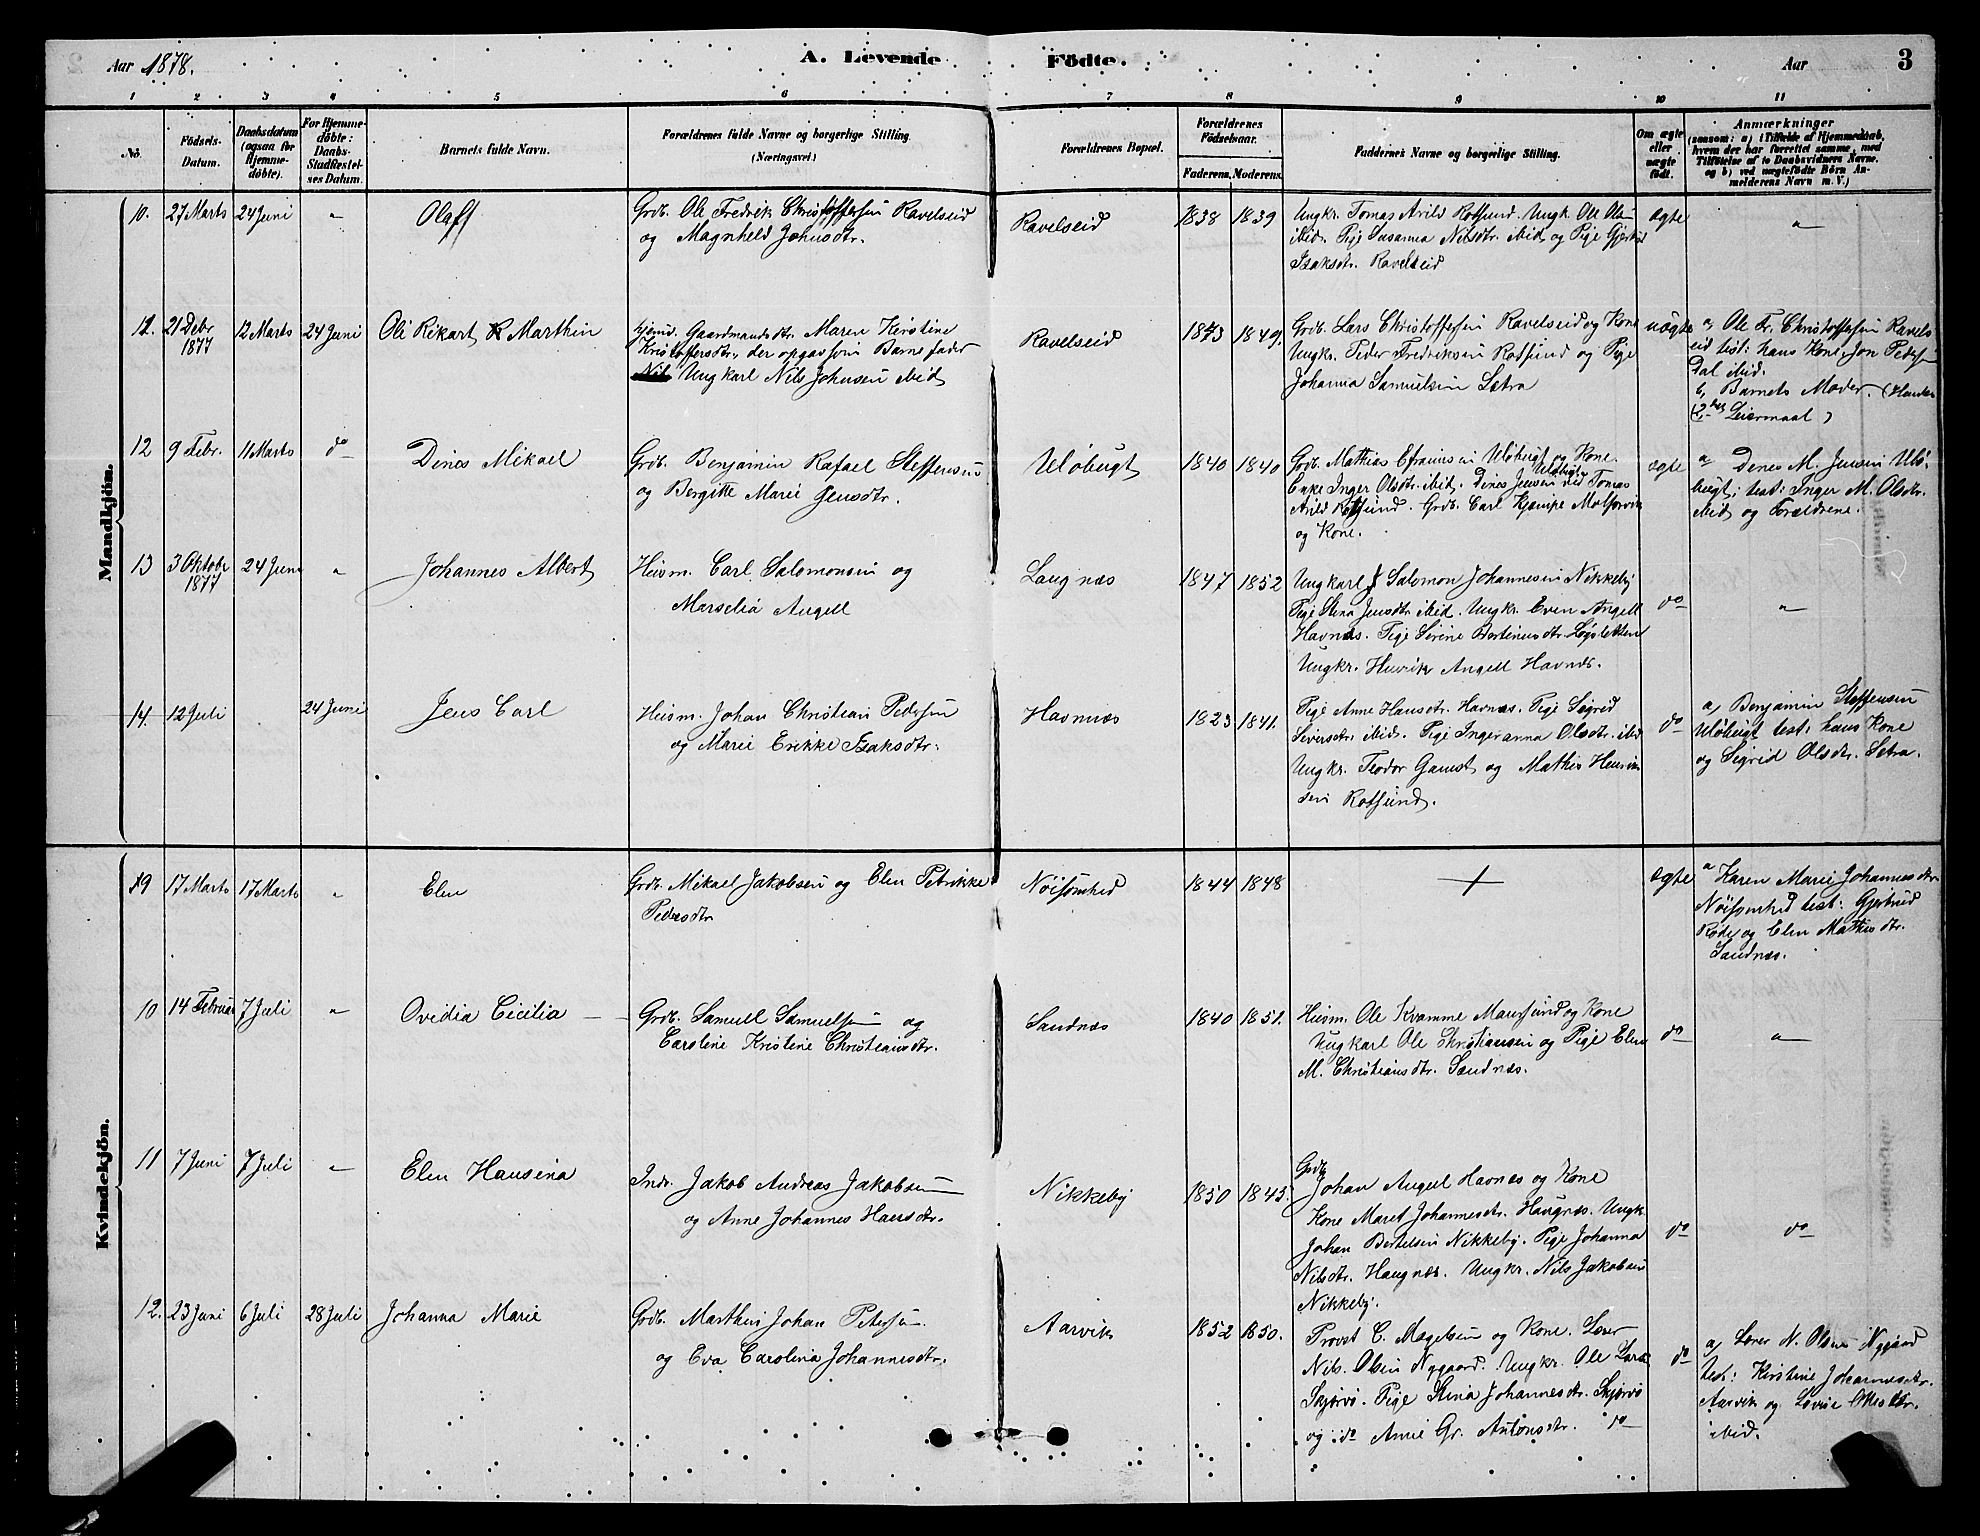 Aar 1878. A. Levende Födte. Aar 3
1 2 3 4 5 6 7 8 9 10 11
No. Födsels-Datum. Daabsdatum (ogsaa for Hjemme-döbte). For Hjemme-döbte: Daabs-Stadfestel-ses Datum. Barnets fulde Navn. Forældrenes fulde Navne og borgerlige Stilling. (Næringsvei) Forældrenes Bopæl. Forældrenes Födselsaar. Faderens. Moderens. Faddernes Navne og borgerlige Stilling. Om ægte eller uægte födt. Anmærkninger
(saasom: a) i Tilfælde af Hjemmedaab,
hvem der har forrettet samme, med
Tilföielse af to Daabsvidners Navne.
og b) ved uægtefödte Börn An-
melderens Navn m. V.)
Mandkjön.
10. 27 Marts 24 Juni " Olaf
Grdb. Ole Fredrik Christoffersen Ravelseid
og Magnheld Johnsdtr.
Ravelseid 1838 1839
Ungkr. Tomas Arild Rotsund. Ungk. Ole Ols
ibid. Pige Susanna Nilsdtr. ibid og Pige Gjertrud
Isaksdtr. Ravelseid
ægte "
11. 21 Debr 1877 12 Marts 24 Juni Ole Rikart Marthin
Gaardmandsdtr. Maren Kirstine
Kristoffersdtr., der opgav som Barnefader
Ungkarl Nils Johnsen ibid
Ravelseid 1843 1849.
Grdb. Lars Christoffersen Ravelseid og Kone
Ungkr. Peder Fredriksen Rotsund og Pige
Johanna Samuelsen Sætra
uægte
a, Ole Fr. Christoffersen Ravels
eid test: hans Kone, Jon Peders
Dal ibid.
b, Barnets Moder. (Hendes
2det Leiermaal)
12 9 Febr. 11 Marts do Dines Mikael
Grdb. Benjamin Rafael Steffensen
og Bergitte Marie Jensdtr.
Uløbugt 1840 1840
Grdb. Mathias Efraimsen Uløbugt og Kone.
Enke Inger Olsdtr. ibid. Dines Jensen Uløbugt Tomas
Arild Rotsund. Grdb. Carl Kjempe
og Kone.
ægte
a Denes M. Jensen Ulø-
bugt; test: Inger M. Olsdtr.
ibid og Forældrene.
13 3 Oktobr 1877 24 Juni " Johannes Albert
Husm. Carl Salomonsen og
Marselia Angell
Laugnæs 1847 1852
Ungkarl Salomon Johannesen Nikkeby
Pige Stina Jensdtr. ibid. Ungkr. Even Angell
Havnæs. Pige Serine Bertinusdtr.
Ungkr. Henrik Angell Havnæs.
do "
14. 12 Juli 24 Juni Jens Carl
Husm. Johan Christian Pedersen
og Marie Erikke Isaksdtr.
Havnnæs 1823 1841.
Pige Anne Hansdtr. Havnæs. Pige Sigrid
Siversdtr. ibid. Pige Ingeranna Olsdtr. ibid
Ungkr. Teodor Gamst og Mathis Henrik
sen Rotsund.
do
a, Benjamin Steffensen
Uløbugt test: hans Kone
og Sigrid Olsdtr. Sætra.
Kvindekjön.
9 17 Marts 17 Marts " Elen
Grdb. Mikael Jakobsen og Elen Petrikke
Pedersdtr.
Nöisomhed 1844 1848
ægte
a Karen Marie Johannesdtr.
Nöisomhed test: Gjertrud
og Elen Mathisdtr.
Sandnæs.
10 14 Februar 7 Juli " Ovidia Cicilia
Grdb. Samuel Samuelsen og
Caroline Kristine Christiansdtr.
Sandnæs 1840 1851.
Husm. Ole Kvamme Maursund og Kone
Ungkarl Ole Christiansen og Pige Elen
M. Christiansdtr. Sandnæs.
do "
11 7 Juni 7 Juli " Elen Hansina
Inds. Jakob Andreas Jakobsen
og Anne Johannes Hansdtr.
Nikkeby 1850 1845.
Grdb.
Johan Angel Havnæs og Kone
Kone Maret Johannesdtr. Haugnæs. Ungk.
Johan Bertelsen Nikkeby. Pige Johanna
Nilsdtr. Haugnæs. Ungkr. Nils Jakobsen
Nikkeby.
do do
12. 23 Juni 6 Juli 28 Juli Johanna Marie
Grdb. Marthin Johan Petersen.
og Eva Carolina Johannesdtr.
Aarvik 1852 1850.
Provst C. Magelsen og Kone. Lærer
Nils Olsen Nygaard. Ungkr. Ole Lars
Skjervö. Pige Stina Johannesdtr. Skjervö
og do Anne Gr. Antonsdtr. do
do
a, Lærer N. Olsen Nygaard
test: Kirstine Johannesdtr.
Aarvik og Lovise
ibid.